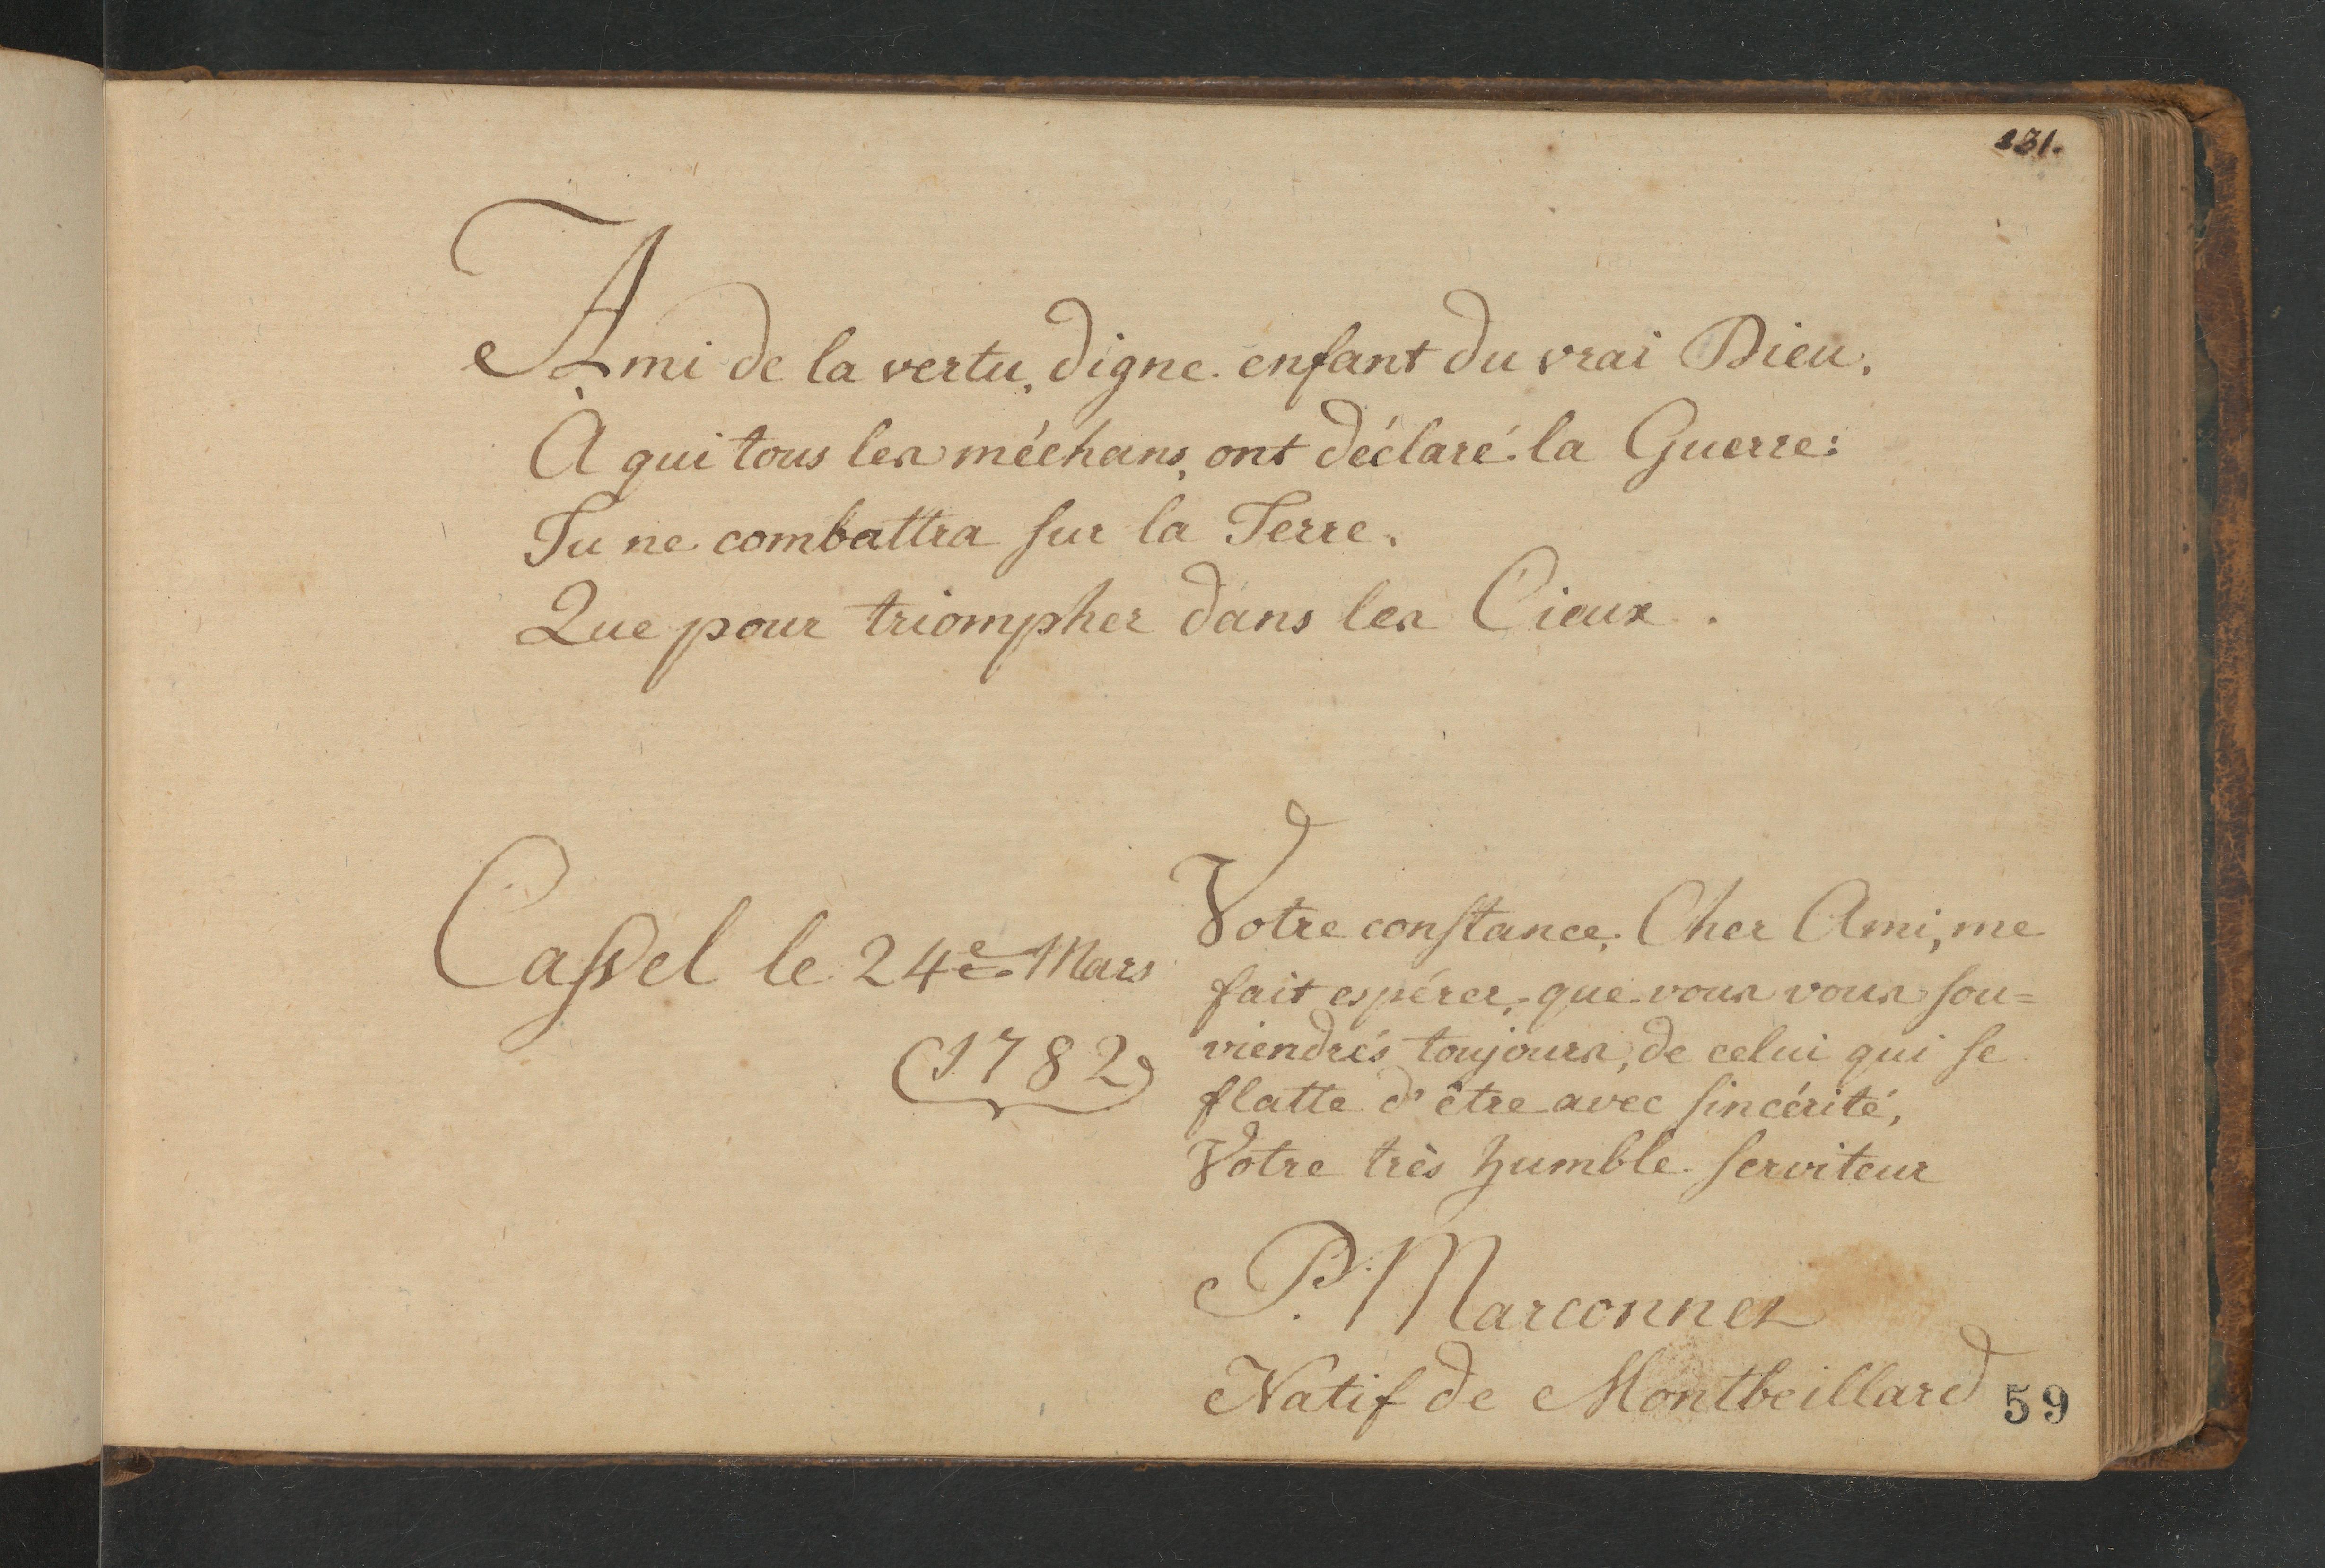 131.
Ami de la vertu, digne enfant du vrai Dieu,
À qui tous les méchans, ont déclaré la Guerre:
Tu ne combattra sur la Terre,
Que pour triompher dans les Cieux.
Cassel le 24e Mars
1782
Votre constance, Cher Ami, me
fait espérer, que vous vous sou=
viendrés toujours, de celui qui se
flatte d'être avec sincérité,
Votre très humble serviteur
P. Marconnes
Natif de Montbeillard
59